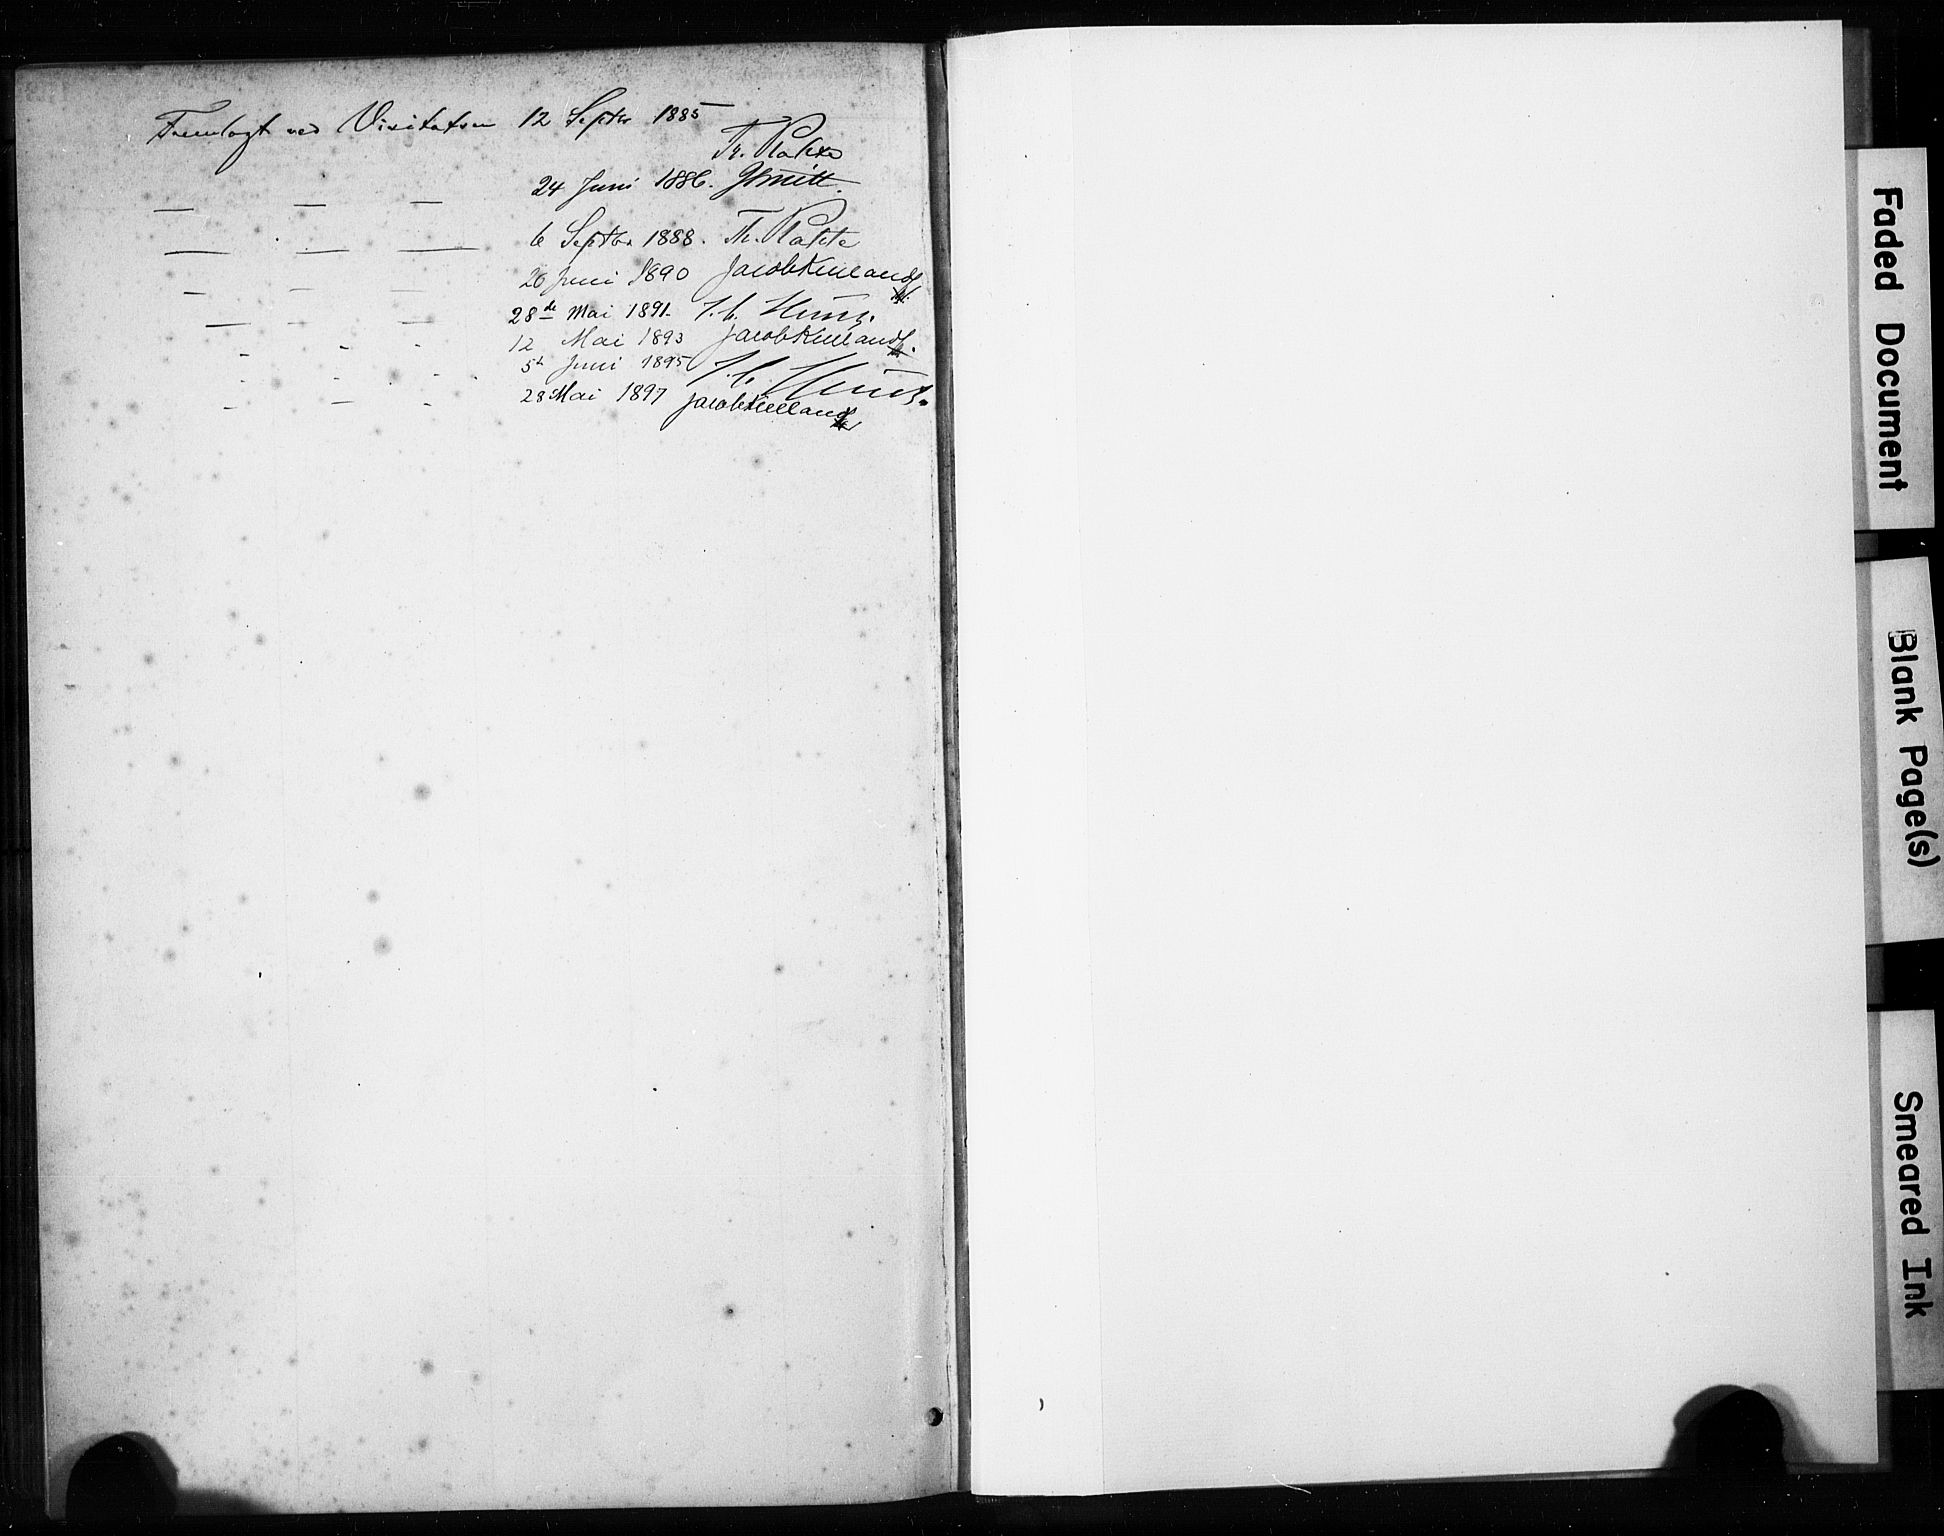 Fremlagt ved Visitatsen 12 Septbr 1885
Th. Rakke
— — — 24 Juni 1886. JSmitt.
— — — 6 Septbr 1888. Th. Rakke
— — — 26 Juni 1890 Jacob Kielland
— — — 28de Mai 1891. J. C.
- - - 12 Mai 1893 Jacob Kielland
- - - 5te Juni 1895 J. C.
- - - 28 Mai 1897 Jacob Kielland
Faded Document
Blank Page(s)
Smeared Ink